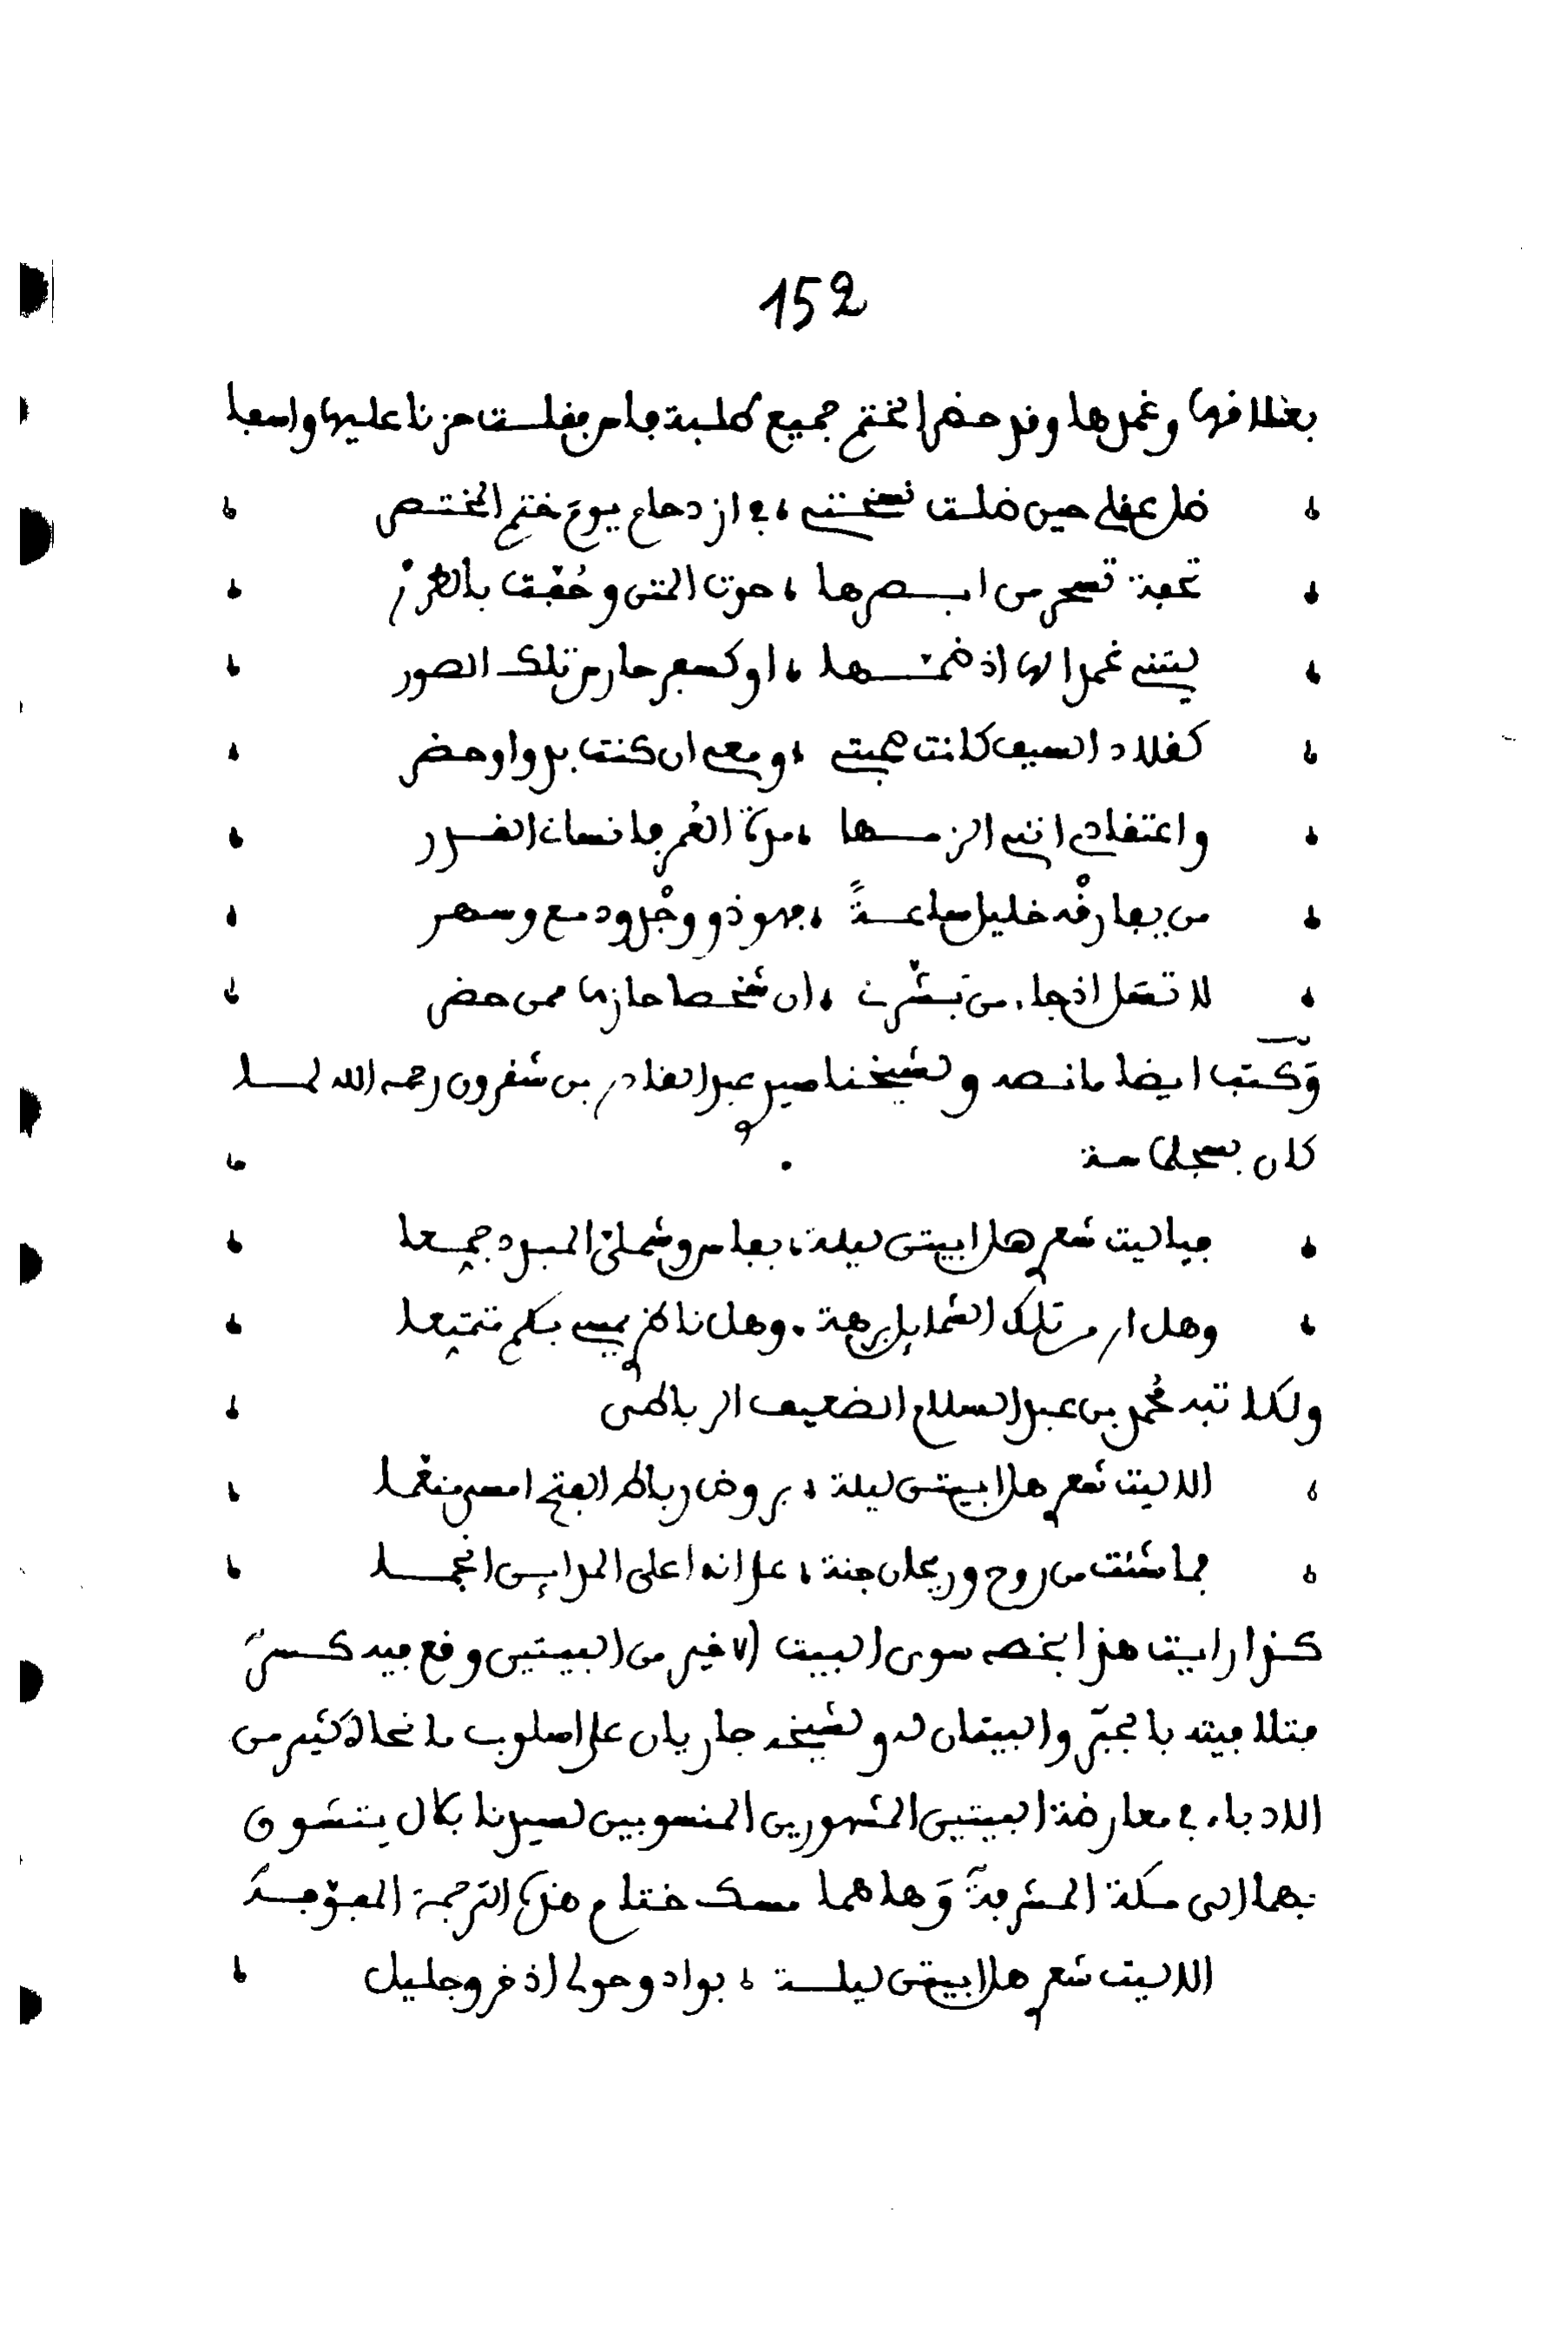 152
بغلافها وغمدها وقد حضر الختم جميع طلبة فاس فقلت حزنا عليها واسفا
ضل عقلي حين ضلت نسختي ، في ازدحام يوم ختم المختصر
تحفة تسحر من ابصرها ، حوت المتن وحُفّت بالطرر
ليتني غمدا لها اذ ضمها ، او كسفر حاز من تلك الصور
كقلاد السيف كانت صحبتي ، ومعي ان كنت بدوا او حضر
واعتقادي انني الزمها ، مدة العُمر فانسان القدر
من يفارقْه خليل ساعةً ، فهو ذو وجْد ودمع وسهر
لا تسل اذ جاء من بَشّرت ، ان شخصا حازها ممن حضر
وَكتب ايضا ما نصه ولشيخنا سيدي عبد القادر بن شقرون رحمه الله لما
كان بسجلماسة
فيا ليت شعري هل ابيتن ليلة ، بفاس وشملي المبدد جمعا
وهل ار من تلك الشمايل برهة . وهل ناظري يمسي بكم متمتعا
ولكاتبه مُحمد بن عبد السلام الضعيف الرباطي
الا ليت شعري هل ابيتن ليلة ، بروض رباط الفتح امسي منعّما
بما شئت من روح وريحان جنة ، على انه اعلى المداين انجما
كذا رايت هذا بخطه سوى البيت الاخير من البيتين وقع فيه كسر
فتلافيته بالجبر والبيتان له ولشيخه جاريان على اسلوب ما نحاه كثير من
الادباء في معارضة البيتين المشهورين المنسوبين لسيدنا بلال يتشوق
بهما الى مكة المشرفة وَها هما مسك ختام هذه الترجمة المفوّفة
الا ليت شعري هل ابيتن ليلة ، بواد وحولي اذخر وجليل